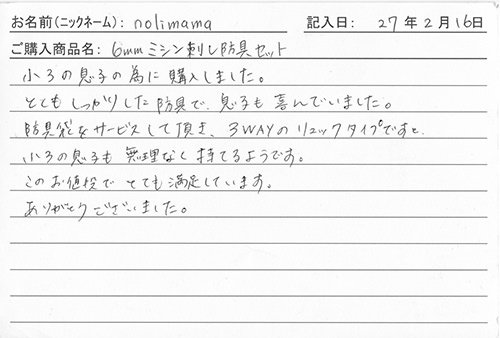 お名前(ニックネーム): nolimama 記入日: 27年2月16日
ご購入商品名: 6mmミシン刺し防具セット
小3の息子の為に購入しました。
とてもしっかりした防具で、息子も喜んでいました。
防具袋をサービスして頂き、3WAYのリュックタイプですと、
小3の息子も無理なく持てるようです。
このお値段でとても満足しています。
ありがとうございました。